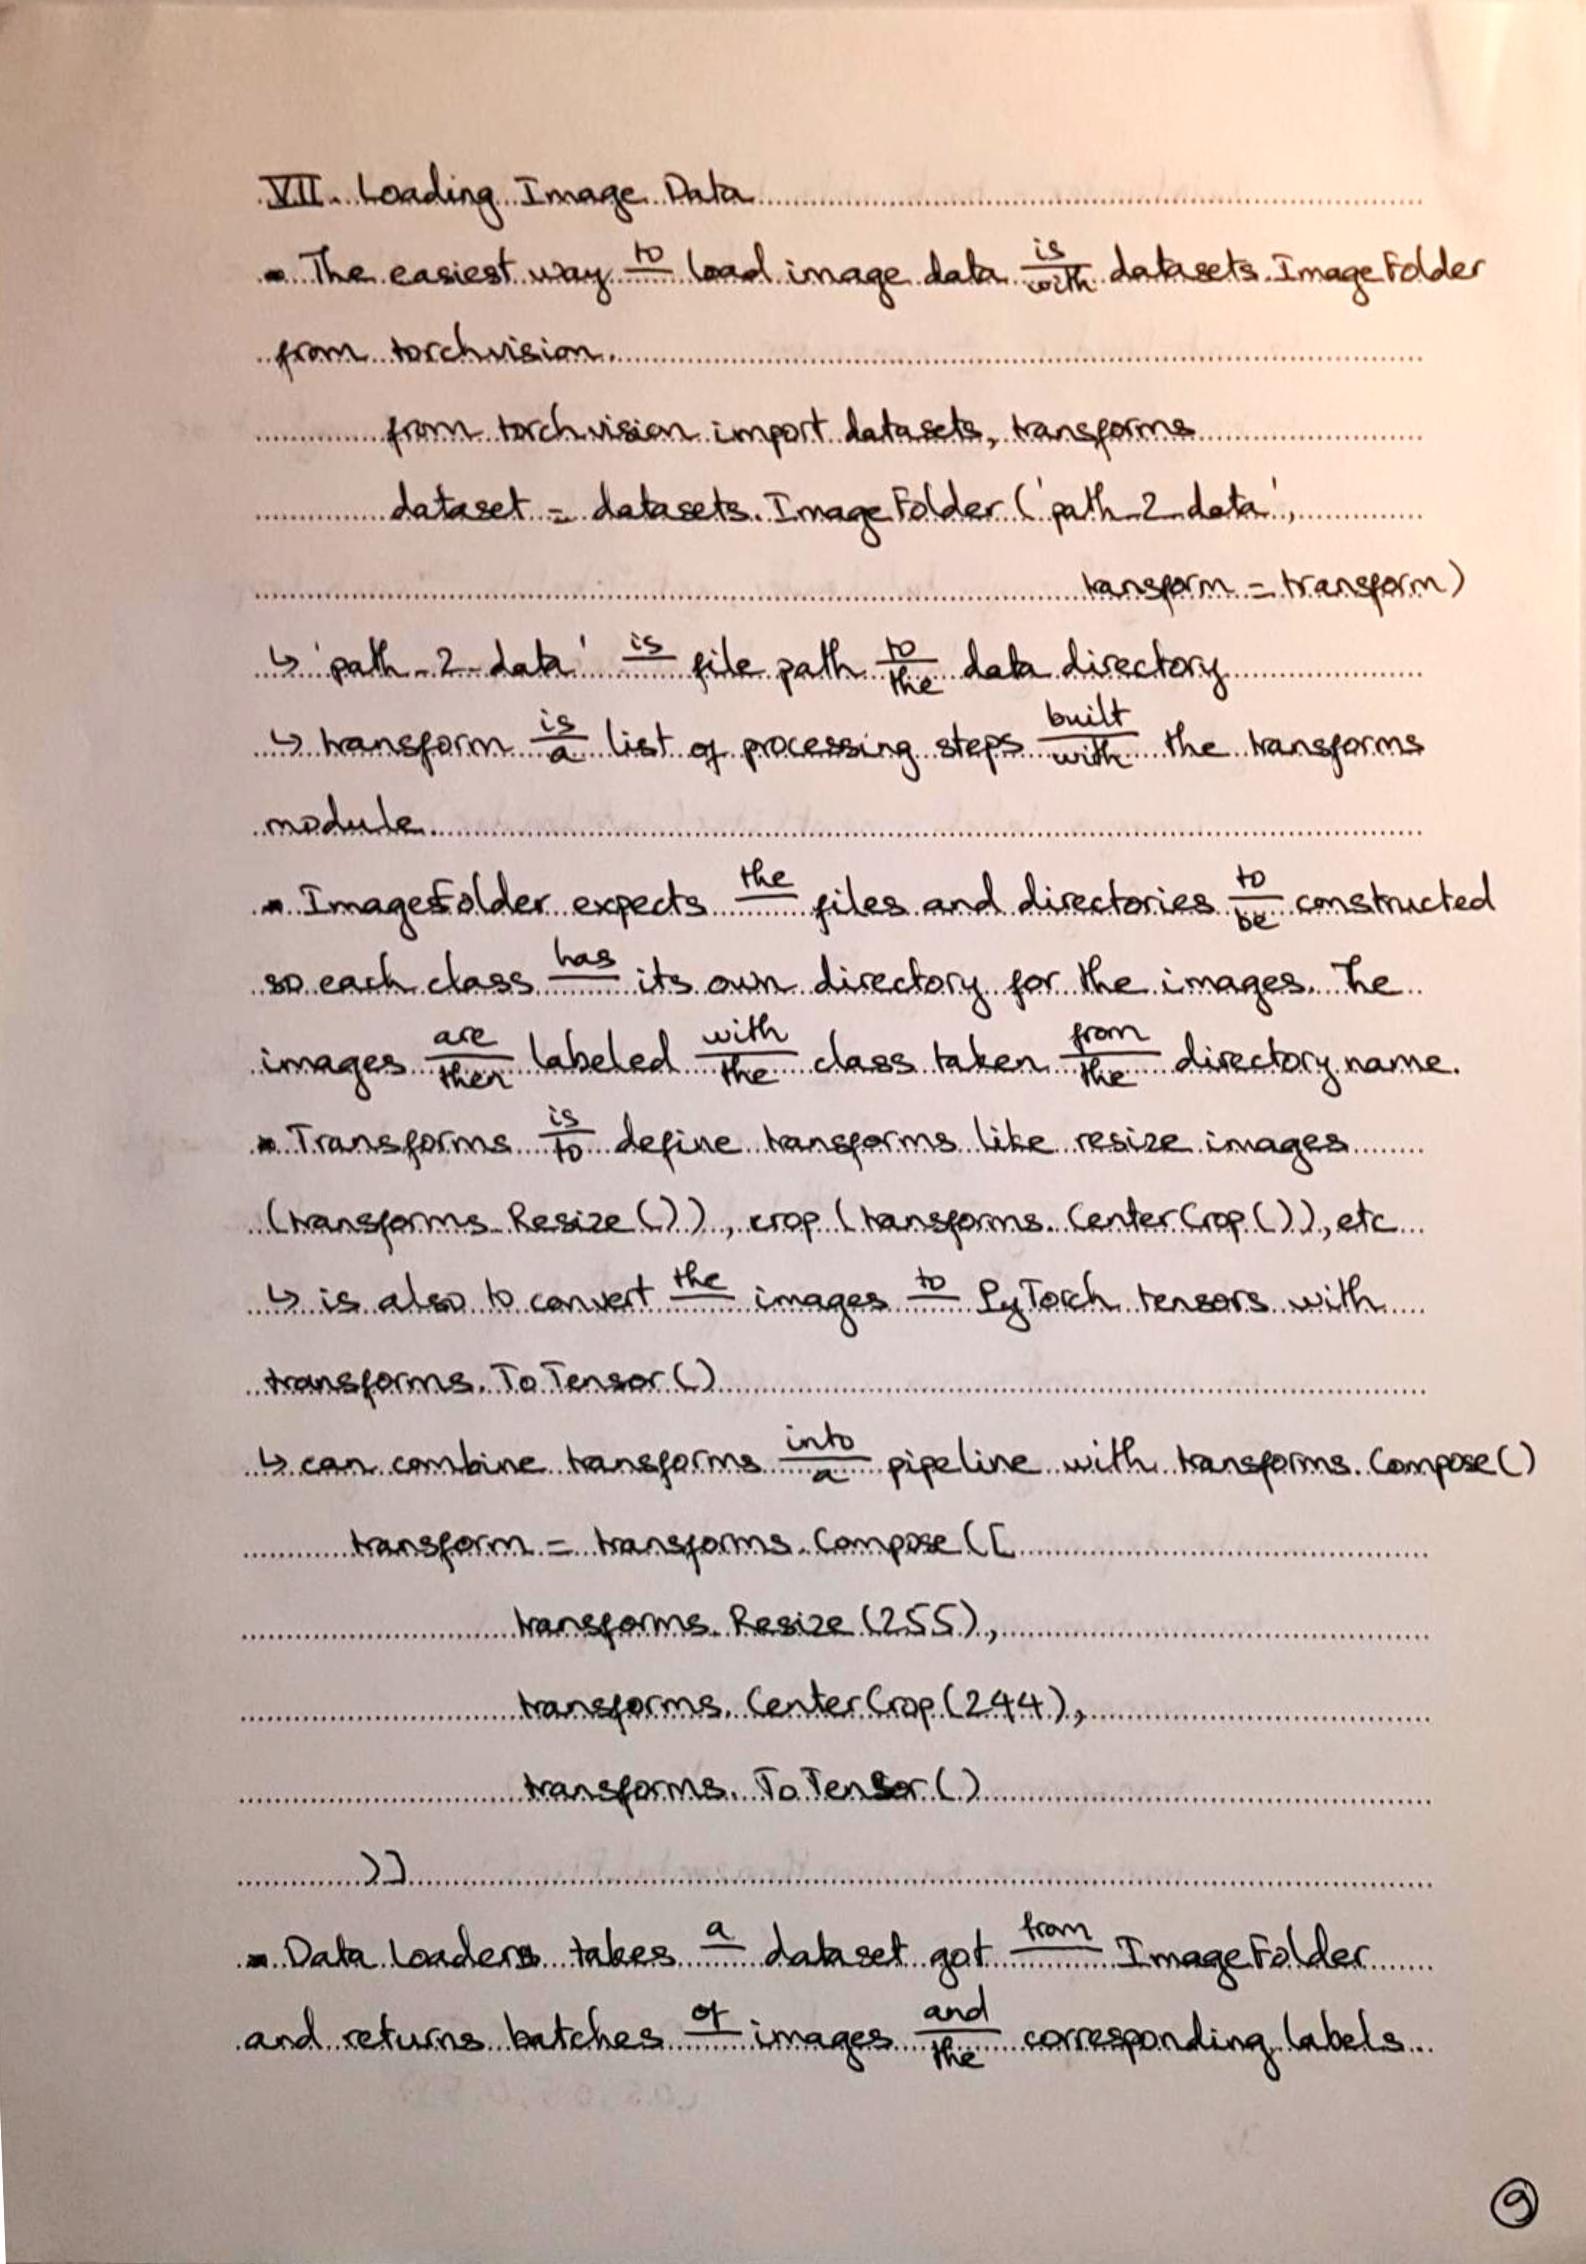 VII. Loading Image Data
- The easiest way to load image data is with datasets.ImageFolder
from torchvision.
from torchvision import datasets, transforms
dataset = datasets.ImageFolder('path_2_data',
transform = transform)
↳ 'path_2_data' is file path to the data directory
↳ transform is a list of processing steps built with the transforms
module.
- ImageFolder expects the files and directories to be constructed
so each class has its own directory for the images. The
images are then labeled with the class taken from the directory name.
- Transforms is to define transforms like resize images
(transforms.Resize()), crop (transforms.CenterCrop()), etc
↳ is also to convert the images to PyTorch tensors with
transforms.ToTensor()
↳ can combine transforms into a pipeline with transforms.Compose()
transform = transforms.Compose([
transforms.Resize(255),
transforms.CenterCrop(244),
transforms.ToTensor()
)]
- Data Loaders takes a dataset got from ImageFolder
and returns batches of images and the corresponding labels
9